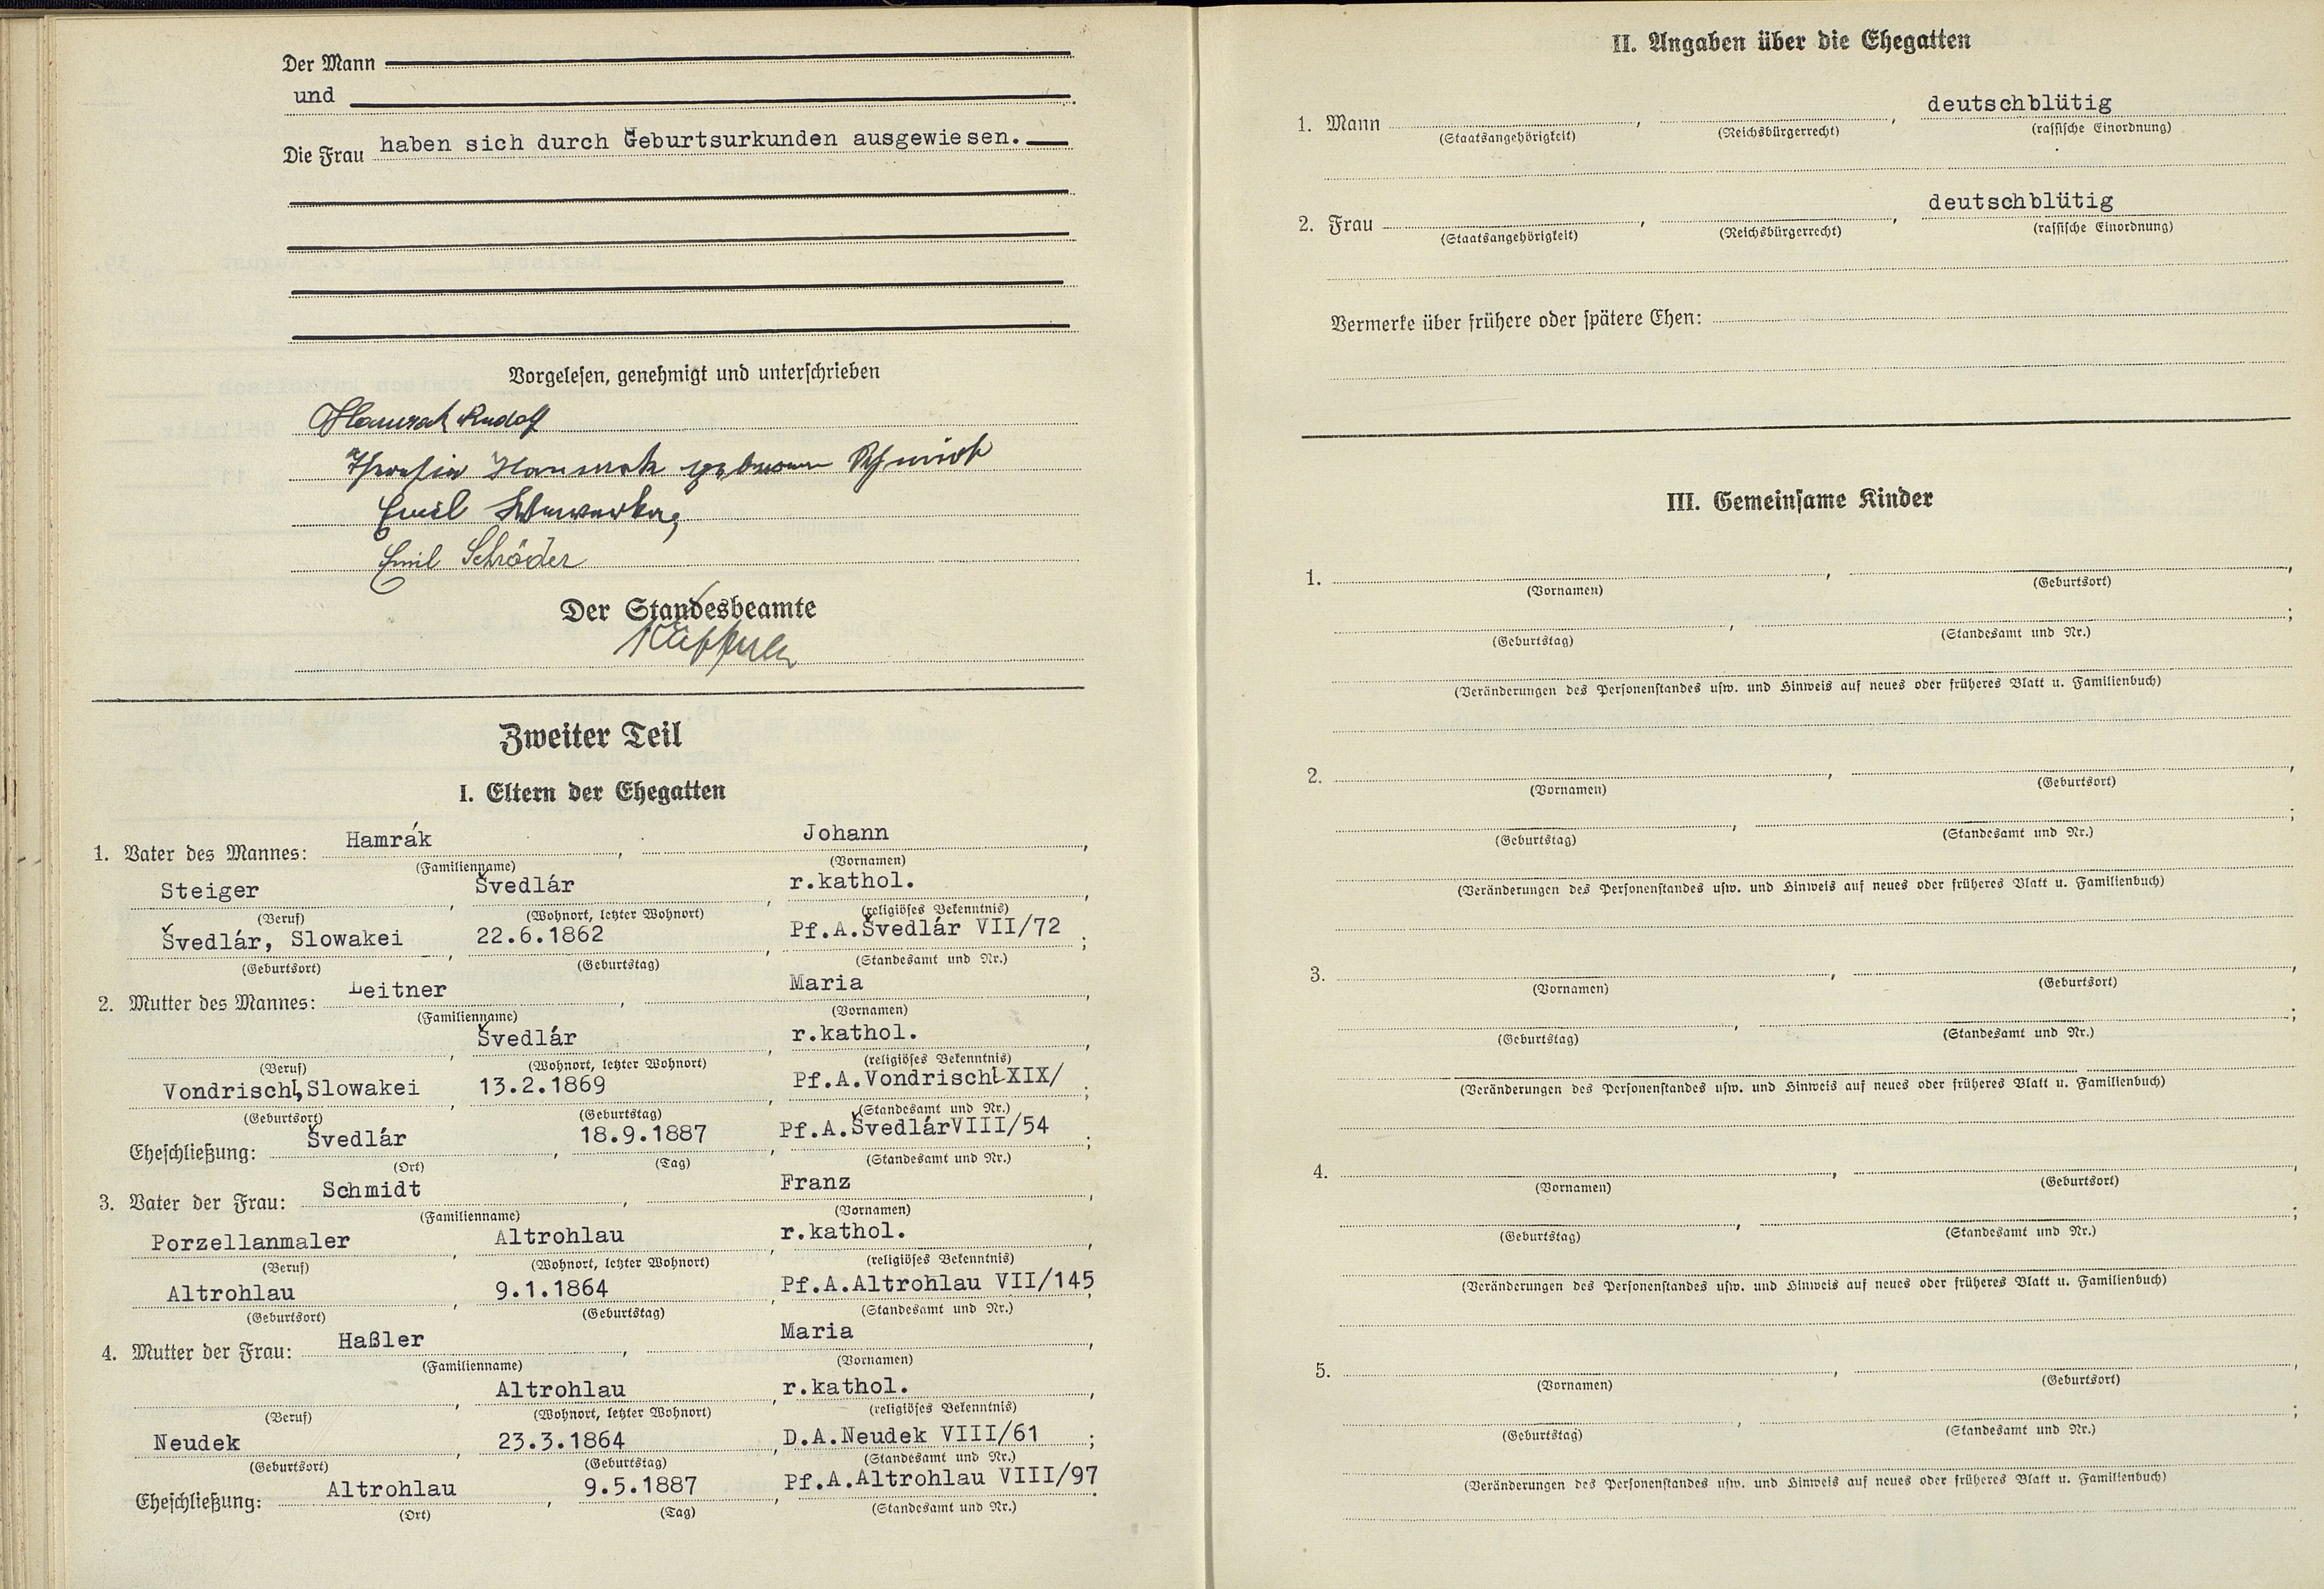 Der Mann
und
Die Frau haben sich durch Geburtsurkunden ausgewiesen.
Vorgelesen, genehmigt und unterschrieben
Hamrak Rudolf
Theresia Hamrak geborene Schmidt
Emil
Emil Schröder
Der Standesbeamte
Zweiter Teil
I. Eltern der Ehegatten
1. Vater des Mannes: Hamrák, Johann,
(Familienname) (Vornamen)
Steiger, Švedlár, r.kathol.,
(Beruf) (Wohnort, letzter Wohnort) (religiöses Bekenntnis)
Švedlár, Slowakei, 22.6.1862, Pf.A.Švedlár VII/72;
(Geburtsort) (Geburtstag) (Standesamt und Nr.)
2. Mutter des Mannes: Leitner, Maria,
(Familienname) (Vornamen)
, Švedlár, r.kathol.,
(Beruf) (Wohnort, letzter Wohnort) (religiöses Bekenntnis)
Vondrischl, Slowakei, 13.2.1869, Pf.A.Vondrischl XIX/;
(Geburtsort) (Geburtstag) (Standesamt und Nr.)
Eheschließung: Švedlár, 18.9.1887, Pf.A.ŠvedlárVIII/54;
(Ort) (Tag) (Standesamt und Nr.)
3. Vater der Frau: Schmidt, Franz,
(Familienname) (Vornamen)
Porzellanmaler, Altrohlau, r.kathol.,
(Beruf) (Wohnort, letzter Wohnort) (religiöses Bekenntnis)
Altrohlau, 9.1.1864, Pf.A.Altrohlau VII/145;
(Geburtsort) (Geburtstag) (Standesamt und Nr.)
4. Mutter der Frau: Haßler, Maria,
(Familienname) (Vornamen)
, Altrohlau, r.kathol.,
(Beruf) (Wohnort, letzter Wohnort) (religiöses Bekenntnis)
Neudek, 23.3.1864, D.A.Neudek VIII/61;
(Geburtsort) (Geburtstag) (Standesamt und Nr.)
Eheschließung: Altrohlau, 9.5.1887, Pf.A.Altrohlau VIII/97.
(Ort) (Tag) (Standesamt und Nr.)
II. Angaben über die Ehegatten
1. Mann , , deutschblütig
(Staatsangehörigkeit) (Reichsbürgerrecht) (rassische Einordnung)
2. Frau , , deutschblütig
(Staatsangehörigkeit) (Reichsbürgerrecht) (rassische Einordnung)
Vermerke über frühere oder spätere Ehen:
III. Gemeinsame Kinder
1. , ,
(Vornamen) (Geburtsort)
, ;
(Geburtstag) (Standesamt und Nr.)
(Veränderungen des Personenstandes usw. und Hinweis auf neues oder früheres Blatt u. Familienbuch)
2. , ,
(Vornamen) (Geburtsort)
, ;
(Geburtstag) (Standesamt und Nr.)
(Veränderungen des Personenstandes usw. und Hinweis auf neues oder früheres Blatt u. Familienbuch)
3. , ,
(Vornamen) (Geburtsort)
, ;
(Geburtstag) (Standesamt und Nr.)
(Veränderungen des Personenstandes usw. und Hinweis auf neues oder früheres Blatt u. Familienbuch)
4. , ,
(Vornamen) (Geburtsort)
, ;
(Geburtstag) (Standesamt und Nr.)
(Veränderungen des Personenstandes usw. und Hinweis auf neues oder früheres Blatt u. Familienbuch)
5. , ,
(Vornamen) (Geburtsort)
, ;
(Geburtstag) (Standesamt und Nr.)
(Veränderungen des Personenstandes usw. und Hinweis auf neues oder früheres Blatt u. Familienbuch)